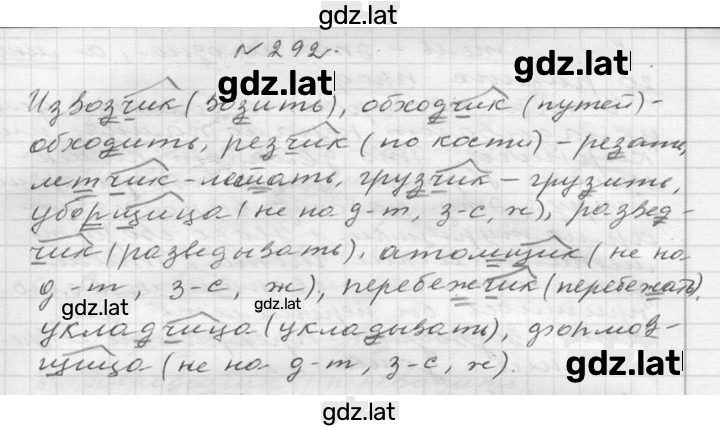 gdz.lat
№292.
gdz.lat gdz.lat
Извозчик (возить), обходчик (путей) -
обходить, резчик (по кости) - резать,
летчик - летать, грузчик - грузить,
уборщица (не на д-т, з-с, ж), развед-
чик (разведывать), атомщик (не на
д-т, з-с, ж), перебежчик (перебежать),
gdz.lat gdz.lat
укладчица (укладывать), формов-
щица (не на д-т, з-с, ж).
gdz.lat
gdz.lat